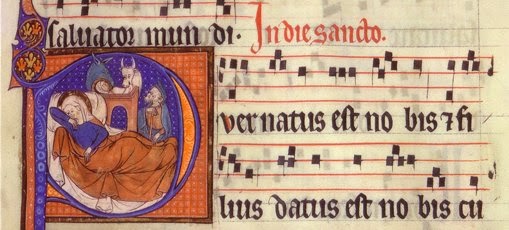 salvator mun di. In die sancto.
P uer natus est no bis ⁊ fi
lius datus est no bis cu